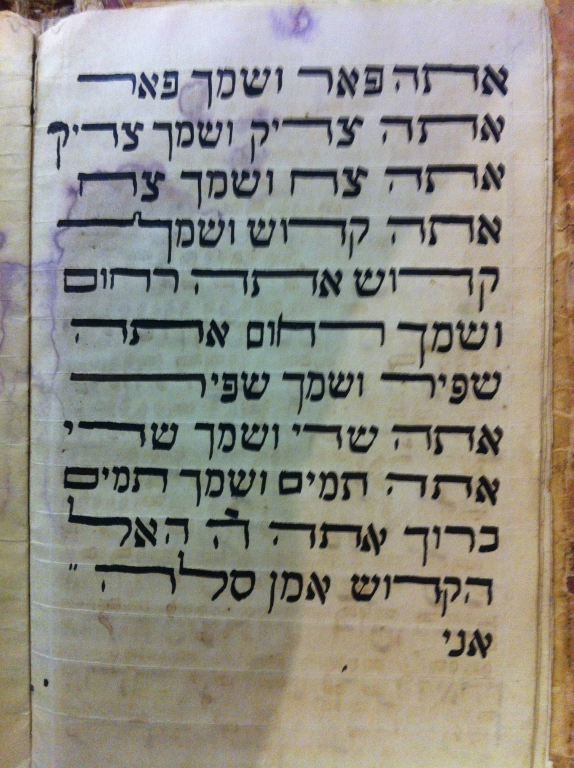 אתה פאר ושמך פאר
אתה צדיק ושמך צדיק
אתה צח ושמך צח
אתה קדוש ושמך
קדוש אתה רחום
ושמך רחום אתה
שפיר ושמך שפיר
אתה שדי ושמך שדי
אתה תמים ושמך תמים
ברוך אתה ה' האל
הקדוש אמן סלה "
אני